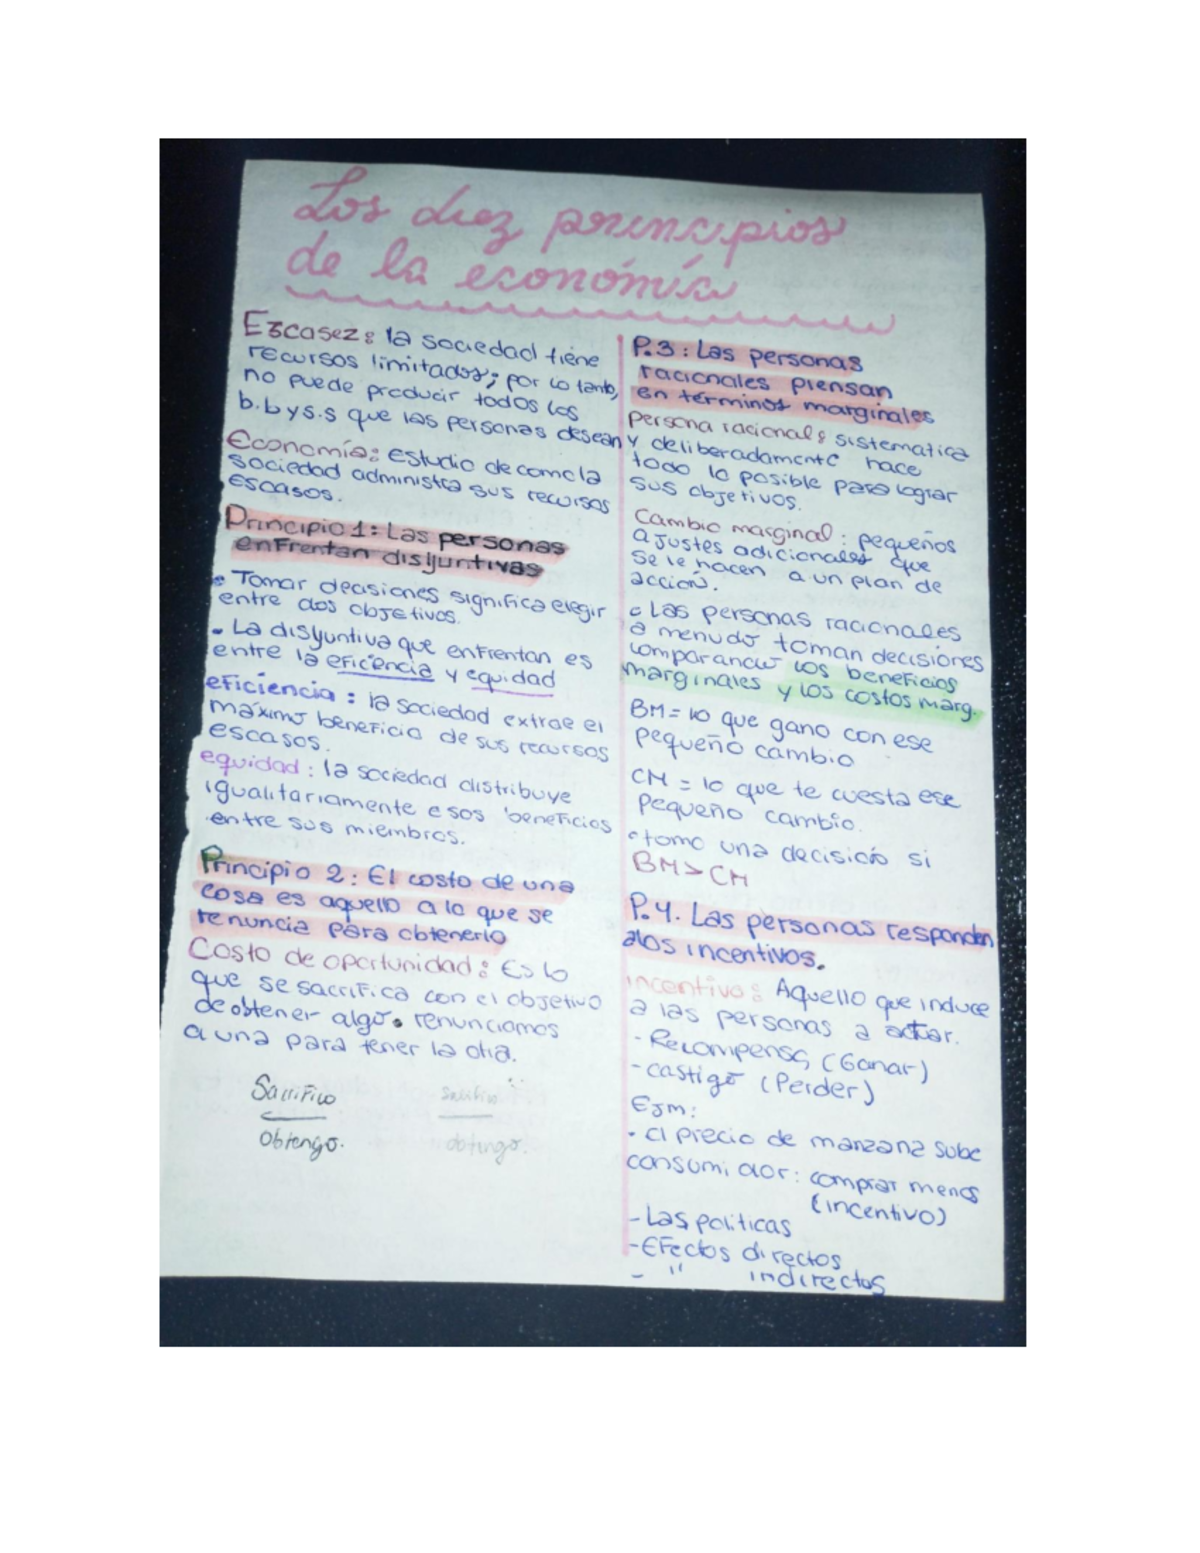 Los diez principios
de la economía
Escasez: la sociedad tiene
recursos limitados; por lo tanto,
no puede producir todos los
b.b y s.s que las personas desean
Economía: estudio de como la
sociedad administra sus recursos
escasos.
Principio 1: Las personas
enfrentan disyuntivas
• Tomar decisiones significa elegir
entre dos objetivos.
• La disyuntiva que enfrentan es
entre la eficiencia y equidad
eficiencia: la sociedad extrae el
máximo beneficio de sus recursos
escasos.
equidad: la sociedad distribuye
igualitariamente esos beneficios
entre sus miembros.
Principio 2: El costo de una
cosa es aquello a lo que se
renuncia para obtenerlo
Costo de oportunidad: Es lo
que se sacrifica con el objetivo
de obtener algo. renunciamos
a una para tener la otra.
Sacrifico
Obtengo.
Sacrifico
obtengo.
P.3: Las personas
racionales piensan
en términos marginales
persona racional: sistematica
y deliberadamente hace
todo lo posible para lograr
sus objetivos.
Cambio marginal: pequeños
ajustes adicionales que
se le hacen a un plan de
acción.
• Las personas racionales
a menudo toman decisiones
comparando los beneficios
marginales y los costos marg.
BM = lo que gano con ese
pequeño cambio
CM = lo que te cuesta ese
pequeño cambio.
• tomo una decisión si
BM > CM
P.4. Las personas responden
a los incentivos.
incentivo: Aquello que induce
a las personas a actuar.
- Recompensa (Ganar)
- castigo (Perder)
Ejm:
• El precio de manzana sube
consumidor: comprar menos
(incentivo)
- Las politicas
- Efectos directos
- " indirectos